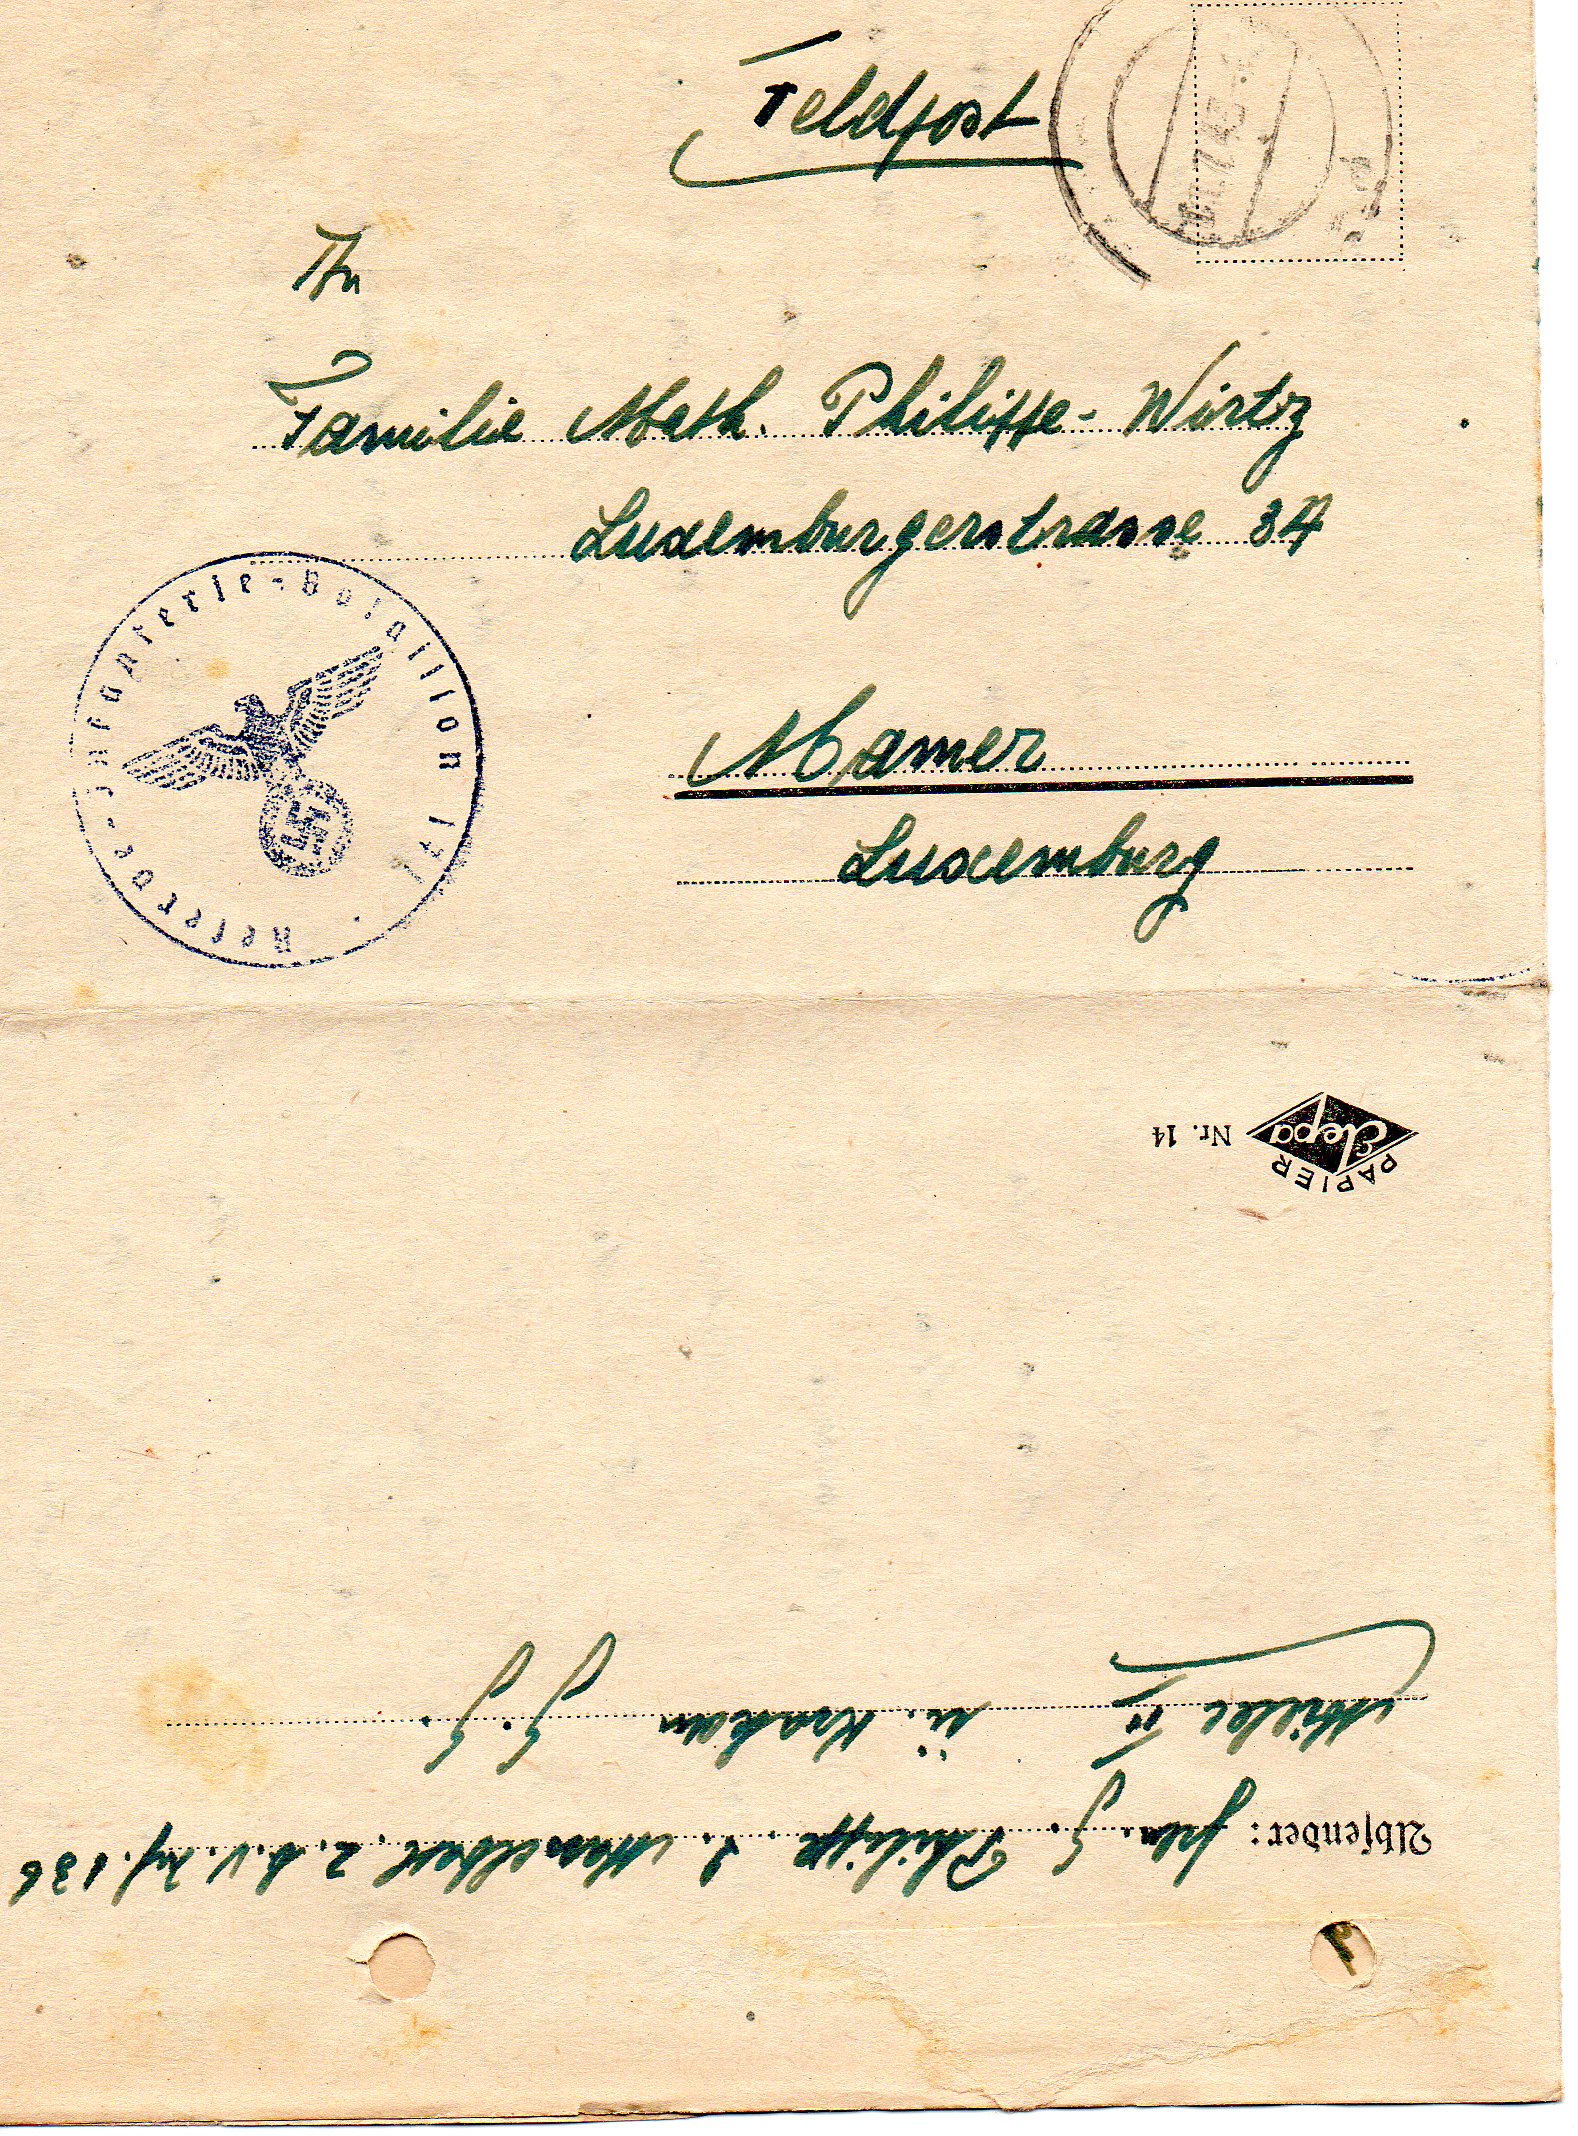 Feldpost
An
Familie Math. Philippe-Wirtz
Luxemburgerstrasse 34
Mamer
Luxemburg
Reserve-Infanterie-Bataillon 171
PAPIER
Elepa Nr. 14
Absender: J. Philippe
Mielec ü. Krakau G. G.